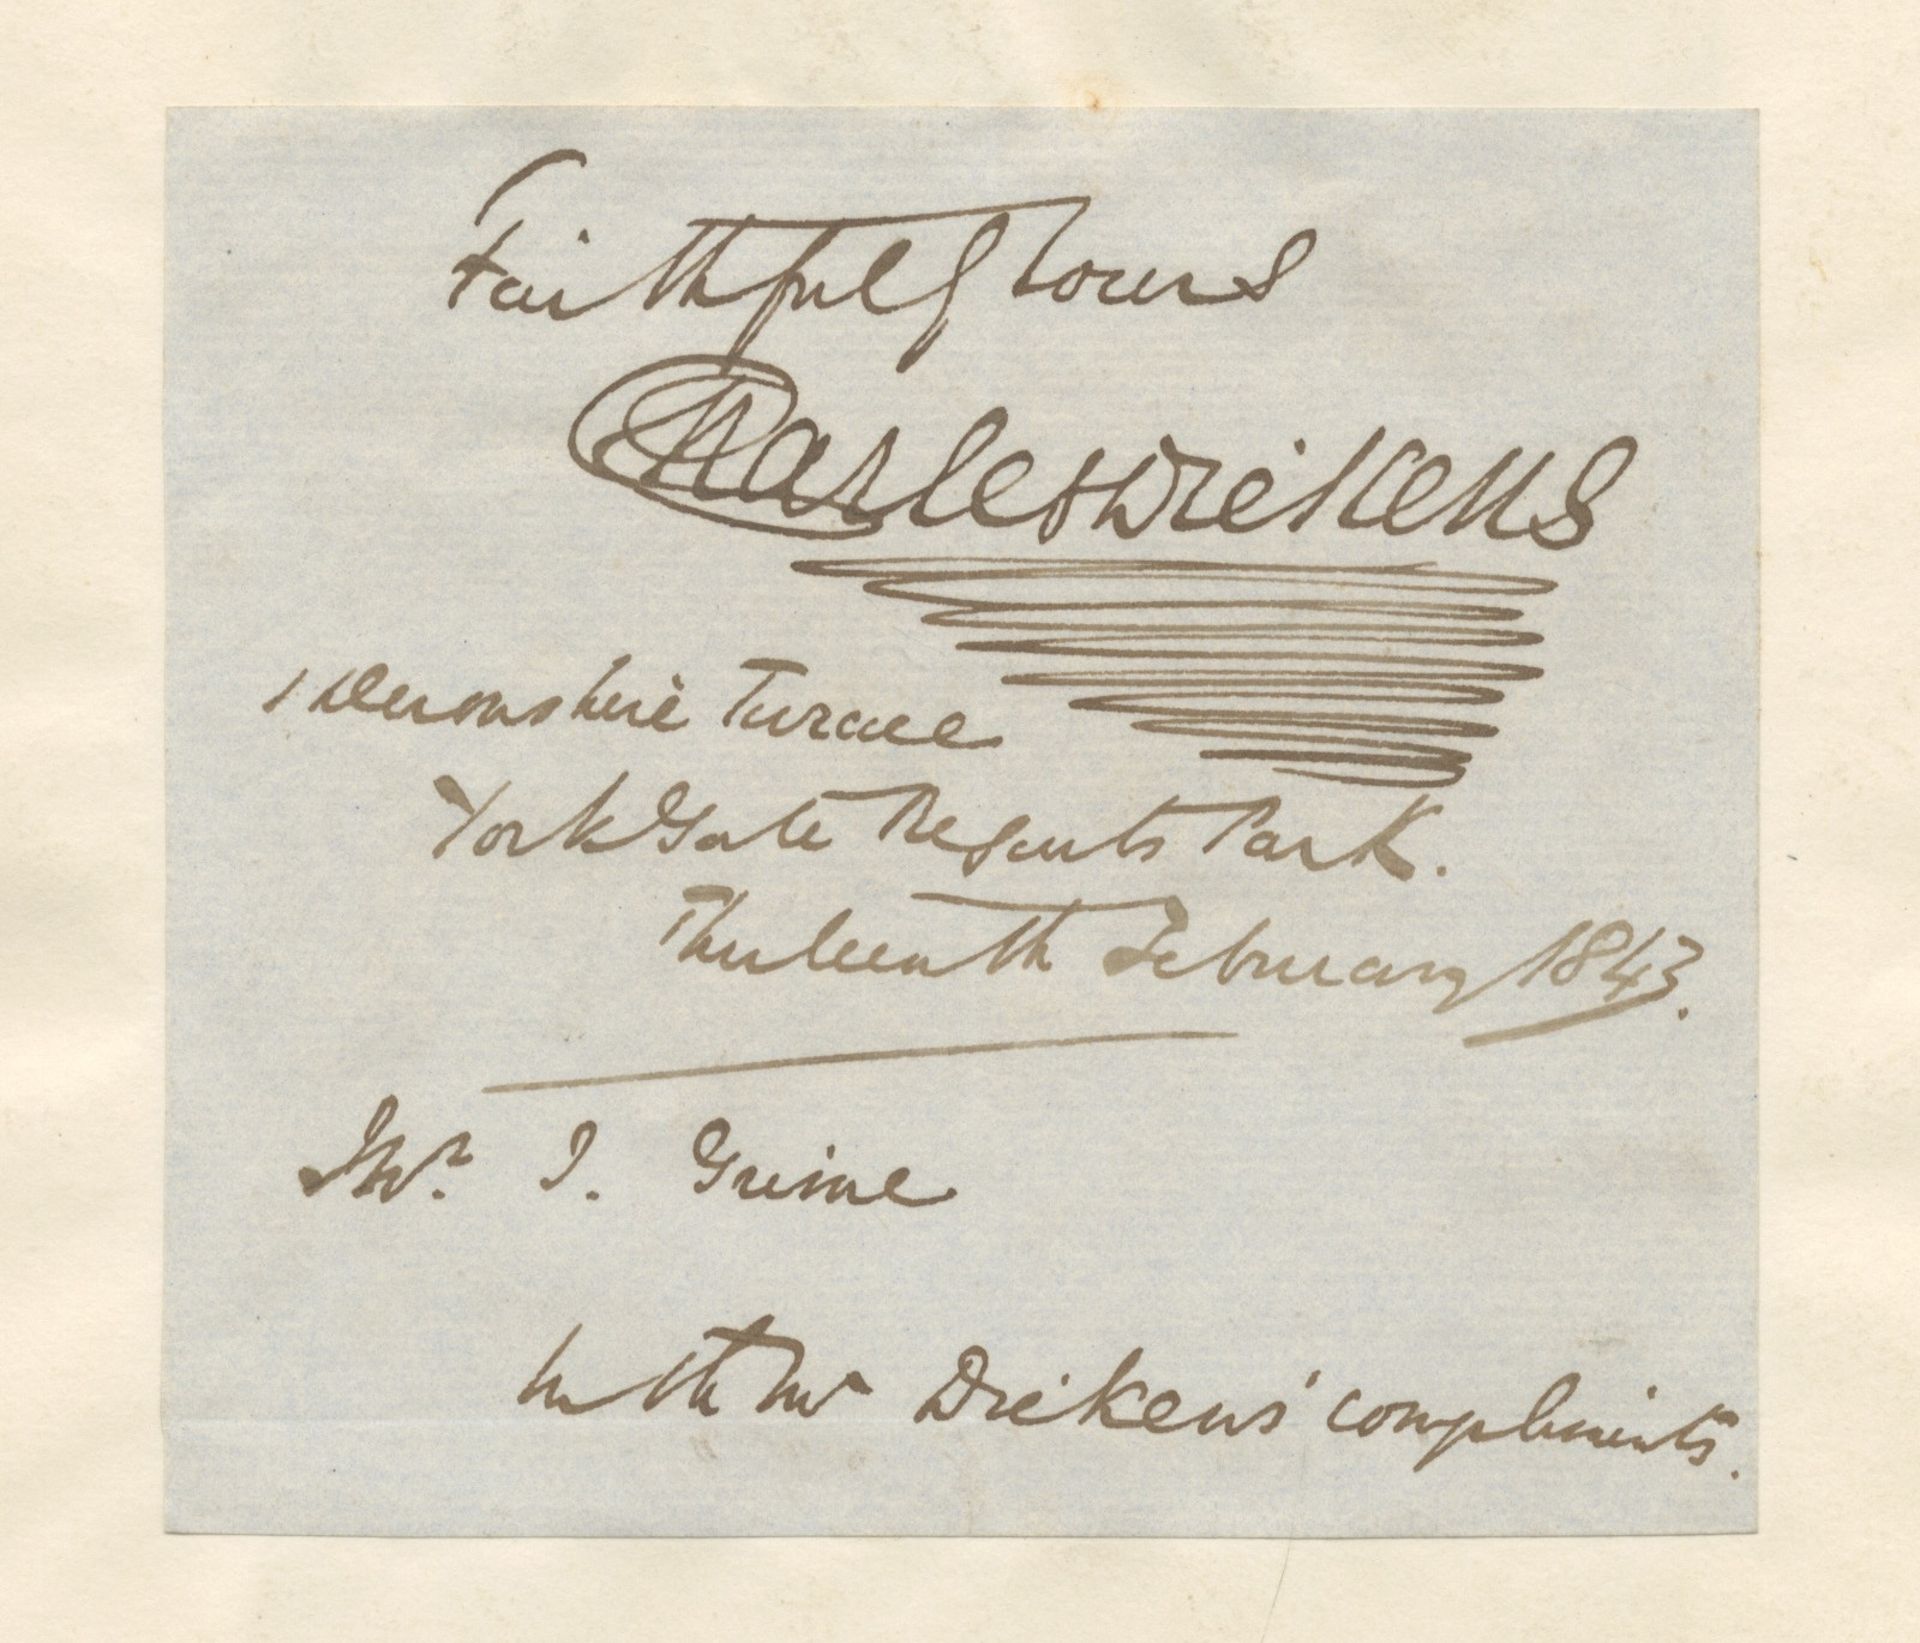 Faithfully Yours
Charles Dickens
1 Devonshire Terrace
York Gate Regents Park.
Thirteenth February 1843.
Mr. J. Grime
With Mr Dickens' compliments.